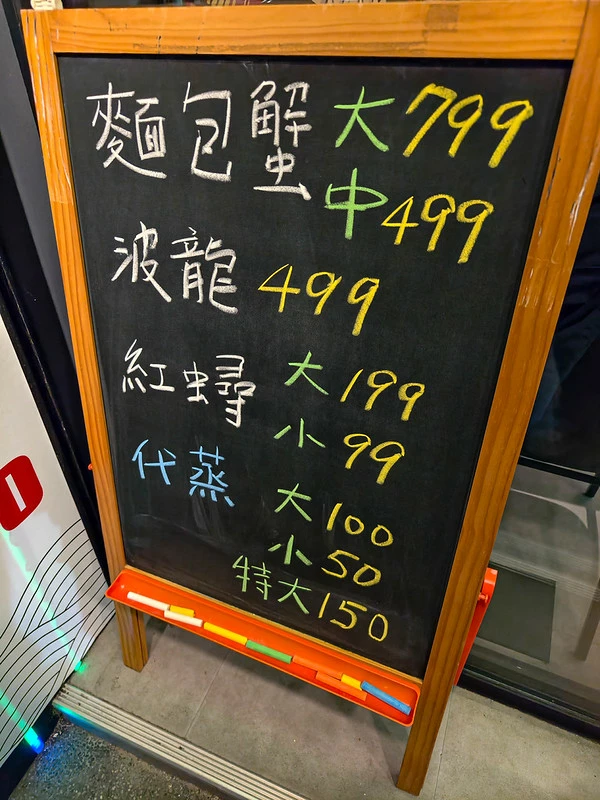 麵包蟹 大 799
中 499
波龍 499
紅蟳 大 199
小 99
代蒸 大 100
小 50
特大 150